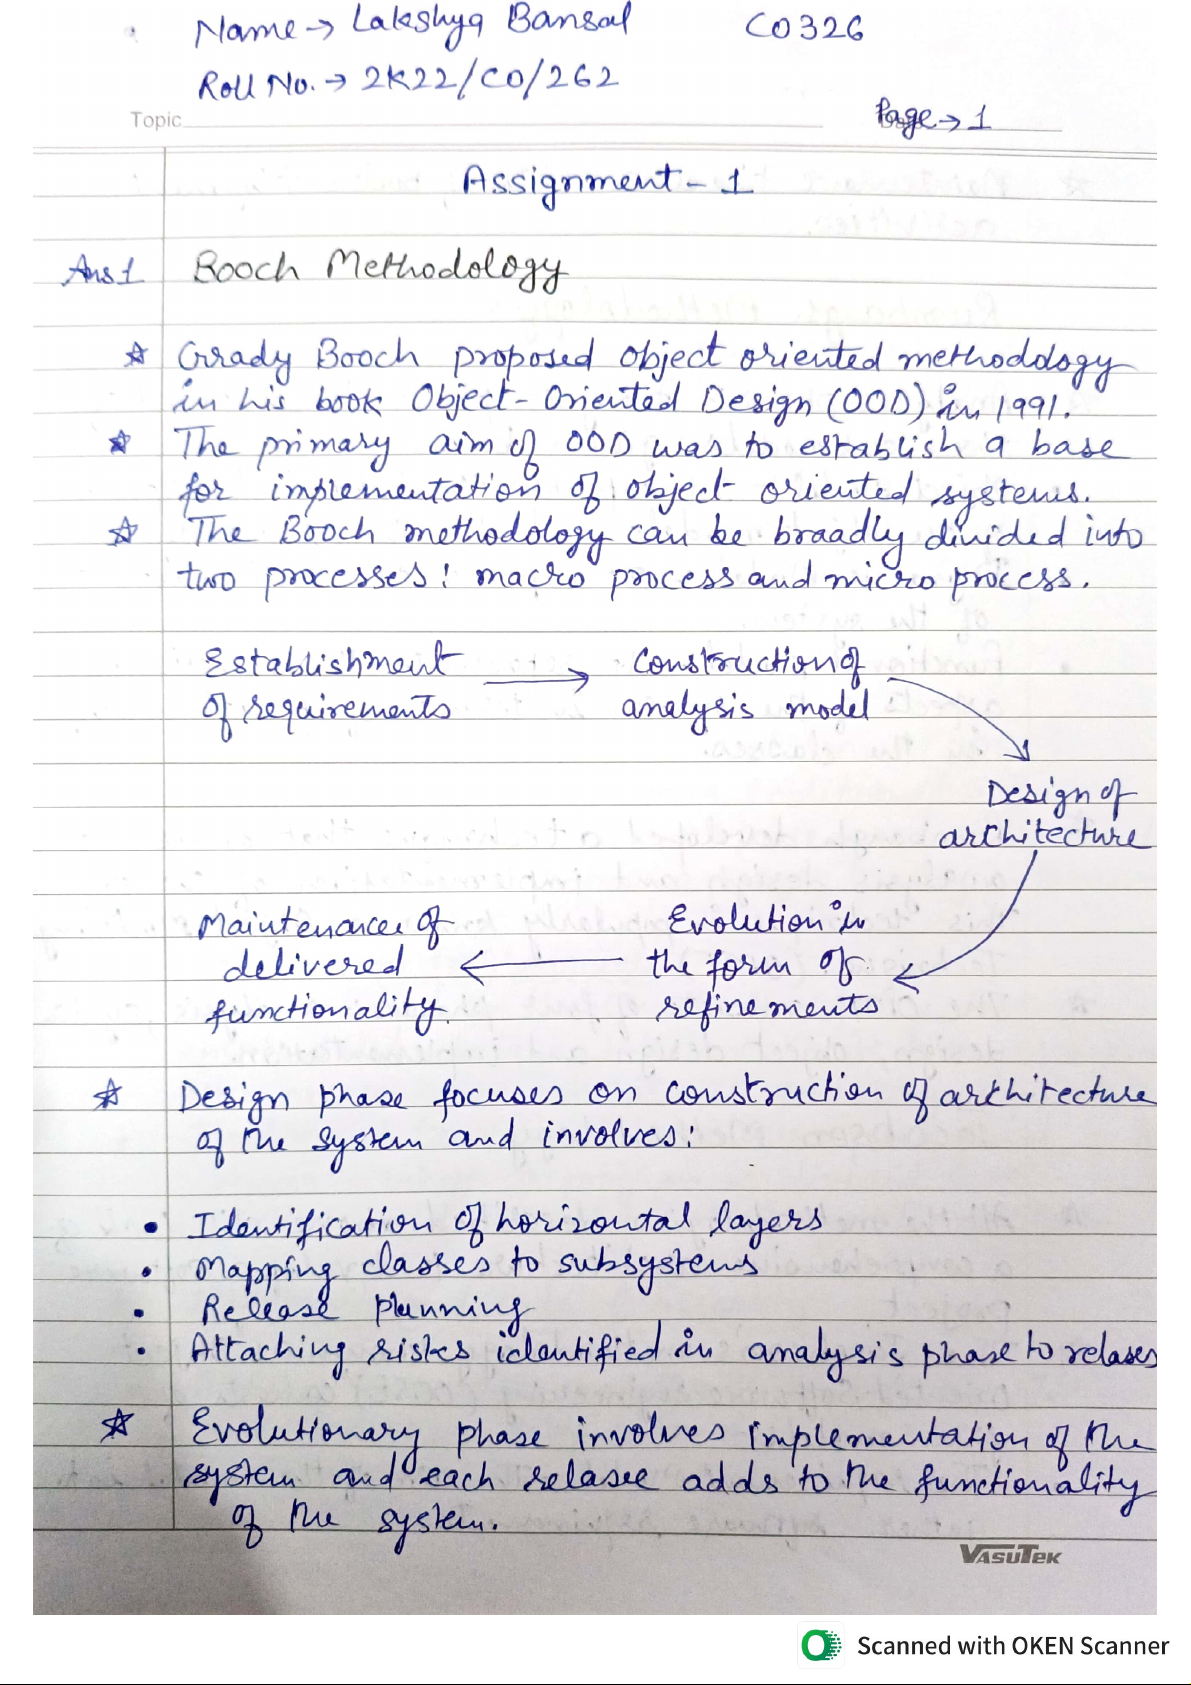 Name → Lakshya Bansal CO326
Roll No. → 2K22/CO/262
Topic Page → 1
Assignment - 1
Ans 1 Booch Methodology
☆ Grady Booch proposed object oriented methodology
in his book Object-Oriented Design (OOD) in 1991.
☆ The primary aim of OOD was to establish a base
for implementation of object oriented systems.
☆ The Booch methodology can be braadly divided into
two processes: macro process and micro process.
Establishment → Construction of
of requirements analysis model
Design of
architecture
Maintenance of Evolution in
delivered ← the form of
functionality. refinements
☆ Design phase focuses on construction of architecture
of the system and involves:
• Identification of horizontal layers
• Mapping classes to subsystems
• Release planning
• Attaching risks identified in analysis phase to relases
☆ Evolutionary phase involves implementation of the
system and each relasee adds to the functionality
of the system.
VASUTEK
Scanned with OKEN Scanner